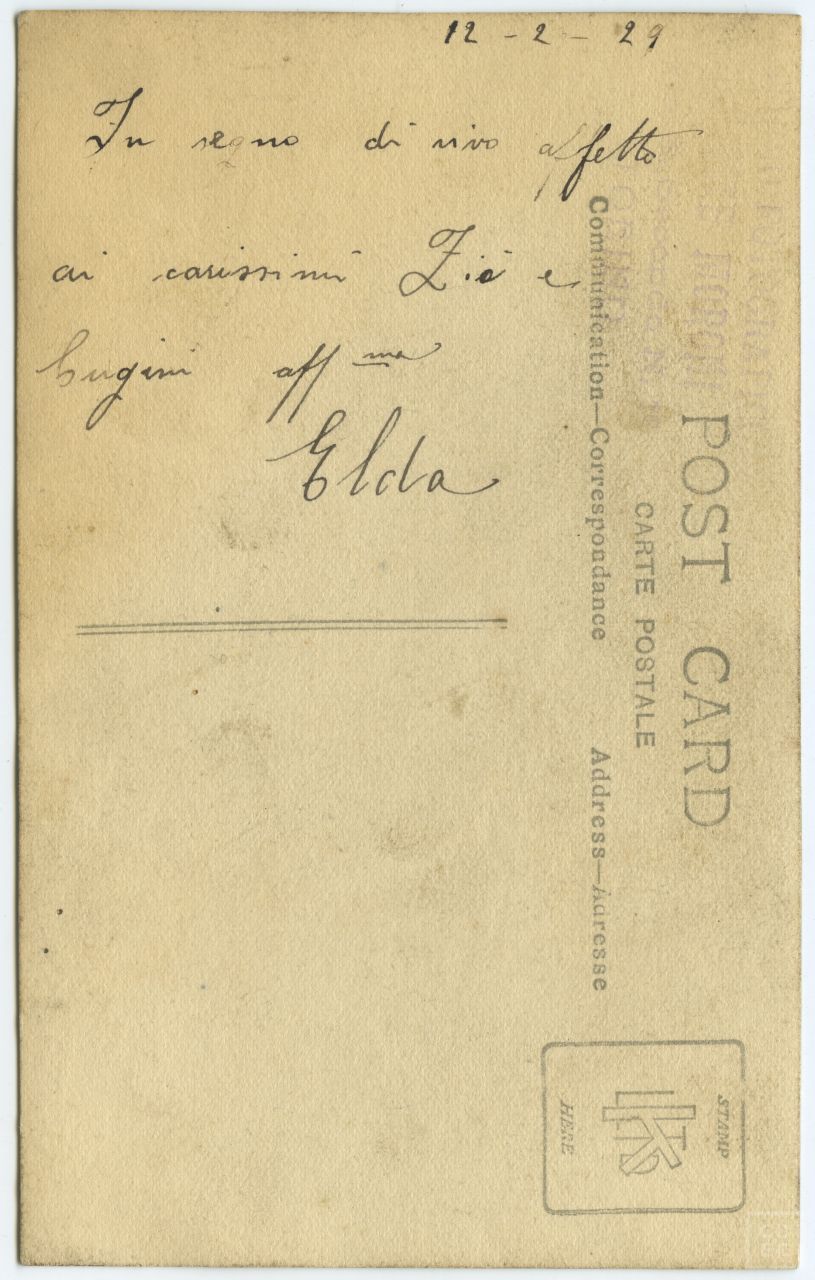 12 - 2 - 29
In segno di vivo affetto
ai carissimi Zii e
Cugini aff ma
Elda
POST CARD
CARTE POSTALE
Communication—Correspondance
Address—Adresse
STAMP
HERE